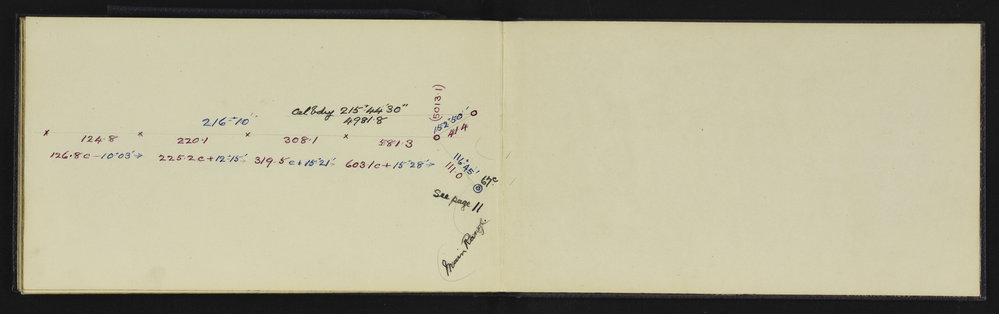 (5013.1)
Cal bdy 215°44'30"
4981.8
216°10'
152°50'
41.4
124.8 220.1 308.1 581.3
126.8c-10°03'→ 225.2c+12°15' 319.5c+15°21' 603.1c+15°28'→
116°45'
111.0
See page 11
Range.